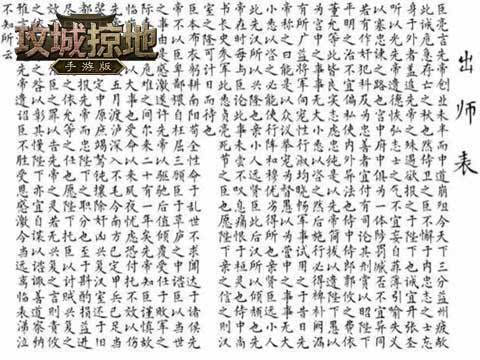 攻城掠地
手游版
出师表
臣亮言先帝创业未半而中道崩殂今天下三分益州疲敝
此诚危急存亡之秋也然侍卫之臣不懈于内忠志之士忘
身于外者盖追先帝之殊遇欲报之于陛下也诚宜开张圣
听以光先帝遗德恢弘志士之气不宜妄自菲薄引喻失义
以塞忠谏之路也宫中府中俱为一体陟罚臧否不宜异同
若有作奸犯科及为忠善者宜付有司论其刑赏以昭陛下
平明之治不宜偏私使内外异法也侍中侍郎郭攸之费依
董允等此皆良实志虑忠纯是以先帝简拔以遗陛下愚以
为宫中之事事无大小悉以咨之然后施行必得裨补阙漏
有所广益将军向宠性行淑均晓畅军事试用之于昔日先
帝称之曰能是以众议举宠为督愚以为营中之事事无大
小悉以咨之必能使行阵和穆优劣得所也亲贤臣远小人
此先汉所以兴隆也亲小人远贤臣此后汉所以倾颓也先
帝在时每与臣论此事未尝不叹息痛恨于桓灵也侍中尚
书长史参军此悉贞亮死节之臣也愿陛下亲之信之则汉
室之隆可计日而待也
臣本布衣躬耕南阳苟全性命于乱世不求闻达于诸侯先
帝不以臣卑鄙猥自枉屈三顾臣于草庐之中谘臣以当世
之事由是感激遂许先帝以驱驰后值倾覆受任于败军之
危难之间尔来二十有一年矣先帝知臣谨慎故
大事也受命以来夙夜忧虑恐付托不效以伤
五月渡泸深入不毛今南方已定甲兵已足当
定中原庶竭驽钝攘除奸凶兴复汉室还于旧
报先帝而忠陛下之职分也至于斟酌损益进
之依允等之任也愿陛下托臣以讨贼兴复之
之罪以告先帝之灵若无兴德之言则责攸
之咎以彰其慢陛下亦宜自谋以谘诹善道察纳
言深追先帝遗诏臣不胜受恩感激今当远离临表涕泣
不知所云